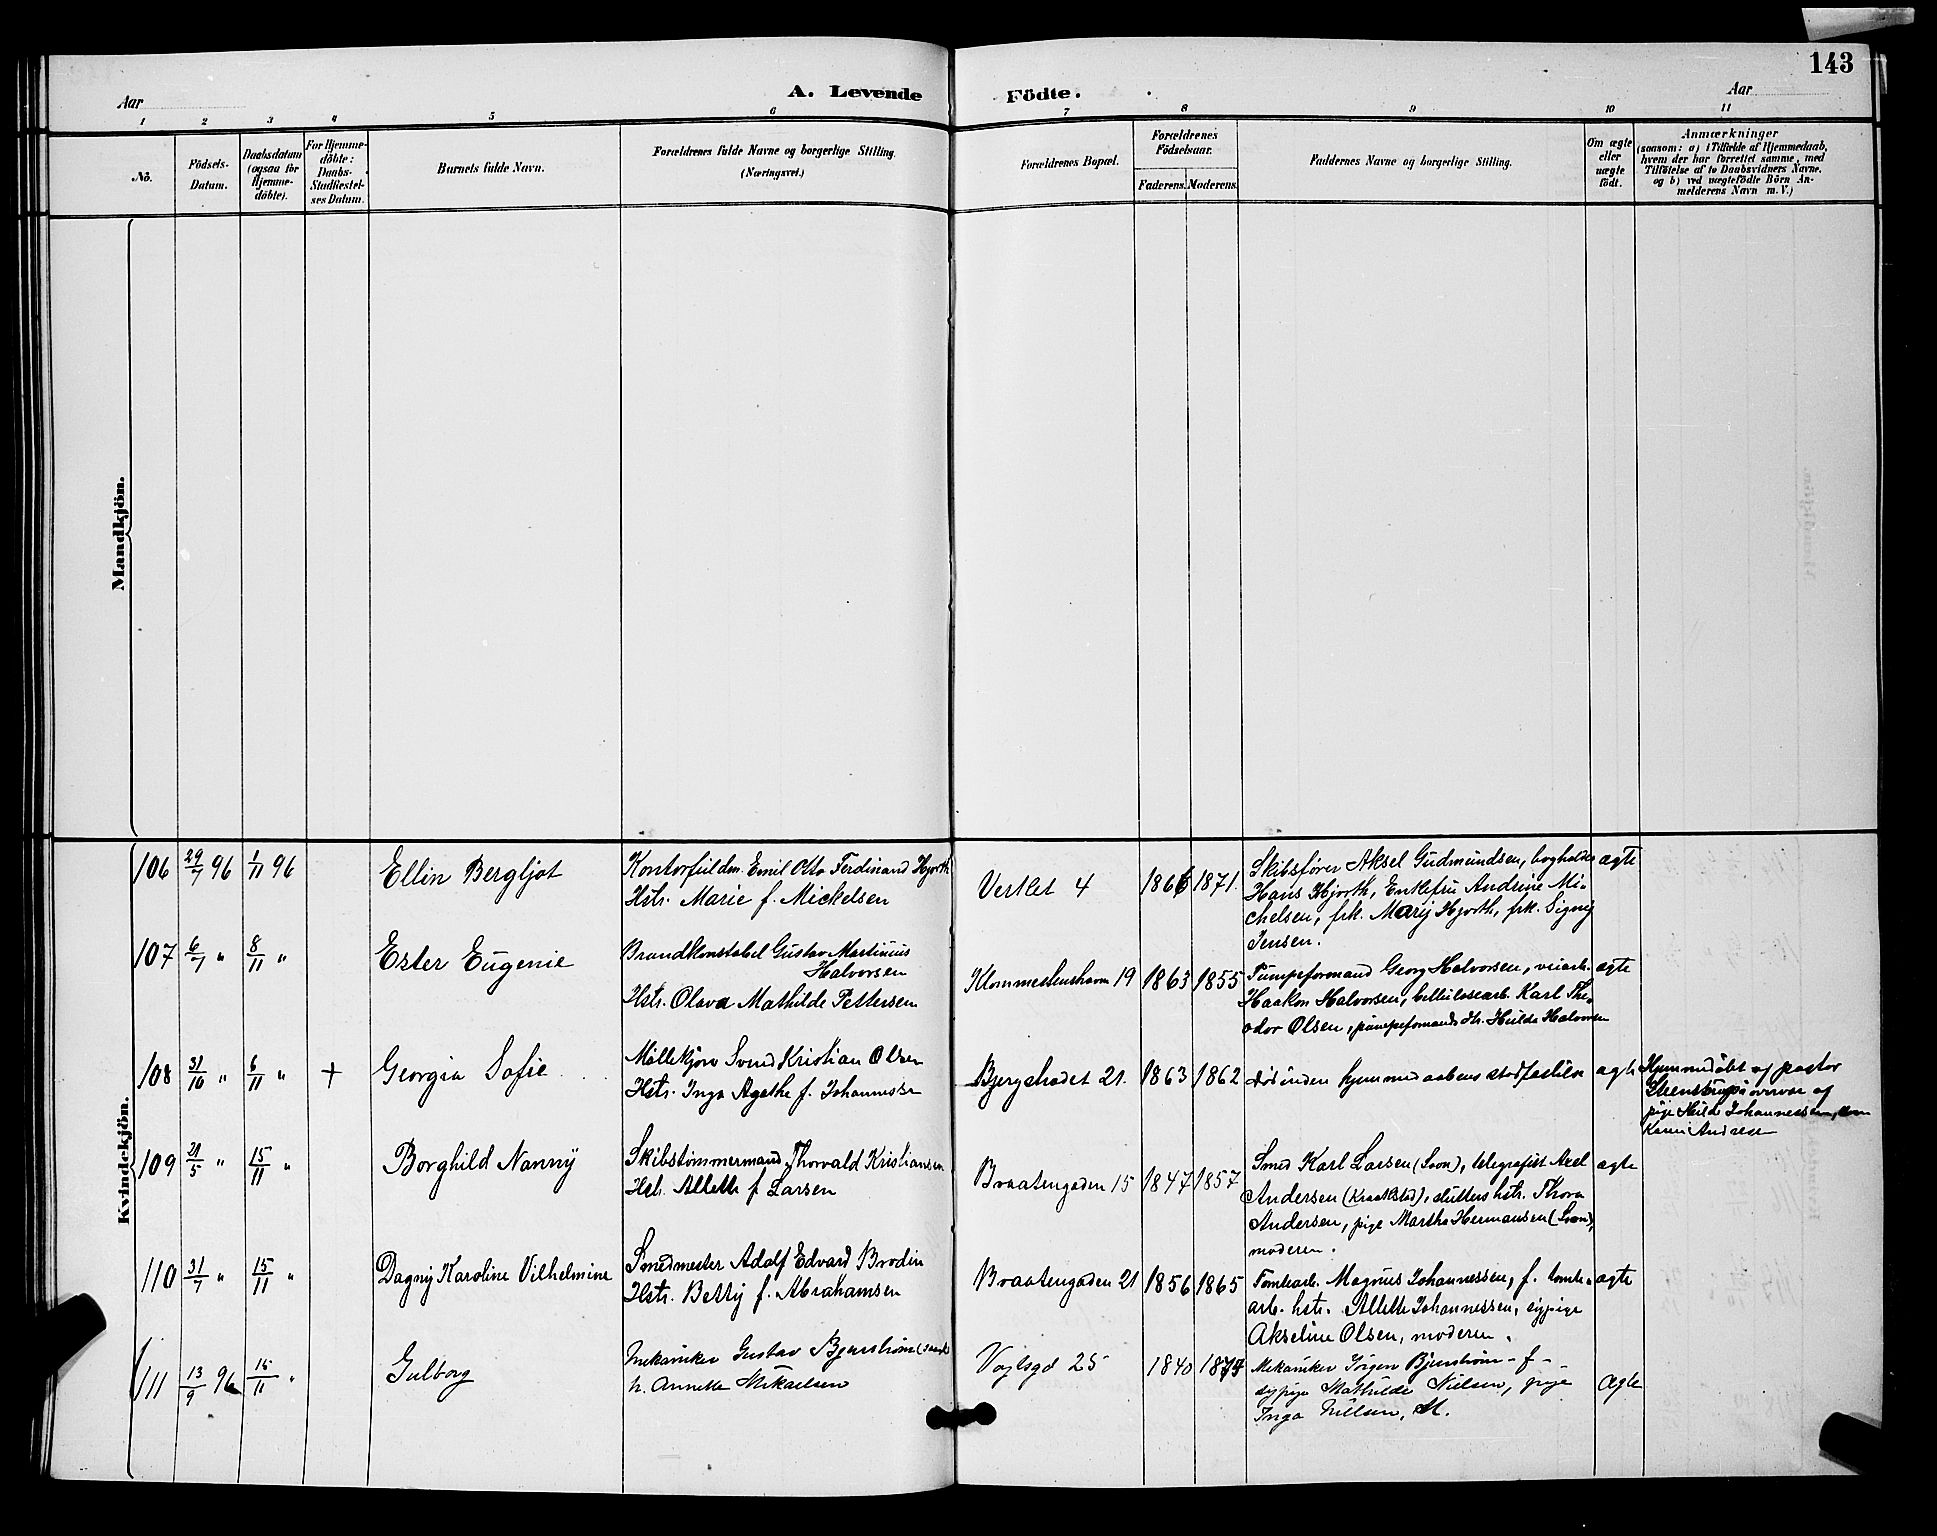 143
Aar
A. Levende
Födte.
Aar
1 2 3 4 5 6 7 8 9 10 11
No.
Födsels-
Datum.
Daabsdatum
(ogsaa for
Hjemme-
döbte).
For Hjemme-
döbte:
Daabs-
Stadfæstel-
ses Datum.
Barnets fulde Navn.
Forældrenes fulde Navne og borgerlige Stilling.
(Næringsvei.)
Forældrenes Bopæl.
Forældrenes
Födselsaar.
Faderens. Moderens.
Faddernes Navne og borgerlige Stilling.
Om ægte
eller
uægte
födt.
Anmærkninger
(saasom: a) i Tilfælde af Hjemmedaab,
hvem der har forrettet samme, med
Tilföielse af to Daabsvidners Navne,
og b) ved uægtefödte Börn An-
melderens Navn m. V.)
Mandkjön.
Kvindekjön.
106 29/7 96 1/11 96
Ellin Bergljot
Kontorfuldm. Emil Otto Ferdinand Hjorth
Hstr. Marie f. Mickelsen
Vertlet 4
1866 1871.
Skibsfører Aksel Gudmundsen, bogholder
Hans Hjorth, Enkefru Andrine Mi-
chelsen, frk. Mary Hjorth, frk. Signy
Jensen.
ægte
107 6/7 " 8/11 "
Ester Eugenie
Brandkonstabel Gustav Martinius
Halvorsen
Hstr. Olava Mathilde Pettersen
Klommestenshavn 19
1863 1855
Pumpeformand Georg Halvorsen, veiarb.
Haakon Halvorsen, cellulosearb. Karl The-
odor Olsen, pumpeformands dtr. Hulda Halvorsen
ægte
108 31/10 " 6/11 " +
Georgia Sofie
Møllekjøre Svend Kristian Olsen
Hstr. Inga Agathe f. Johannessen
Bjergstadet 21.
1863 1862
død inden hjemmedaabens stadfæstelse
ægte
Hjemmedøbt af pastor
Steenstrup i overvær af
pige Hulda Johannessen,
Karen Andrese
109 21/5 " 15/11 "
Borghild Nanny
Skibstømmermand Thorvald Kristiansen
Hstr. Alette f Larsen
Braatengaden 15
1847 1857
Smed Karl Larsen (Soon), telegrafist Axel
Andersen (Kraakstad), slutters hstr. Thora
Andersen, pige Martha Hermansen (Soon),
moderen.
ægte
110 31/7 " 15/11 "
Dagny Karoline Vilhelmine
Smedmester Adolf Edvard Brodin
Hstr. Betty f. Abrahamsen
Braatengaden 21
1856 1865
Tomtearb. Magnus Johannessen, f. tomte-
arb. hstr. Alette Johannessen, sypige
Akseline Olsen, moderen.
ægte
111 13/9 96 15/11 "
Gulborg
Mekaniker Gustav Bjenstrøm
h. Annette Mikaelsen
Vogtsgd 25
1840 1874
Mekaniker Jørgen Bjenstrøm - f -
sypige Mathilde Nielsen, pige
Inga Nilsen, M.
Ægte